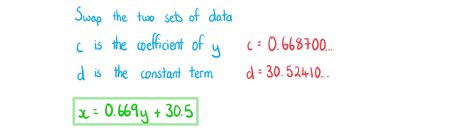 Swap the two sets of data
c is the coefficient of y c = 0.668700...
d is the constant term d = 30.52410...
x = 0.669y + 30.5